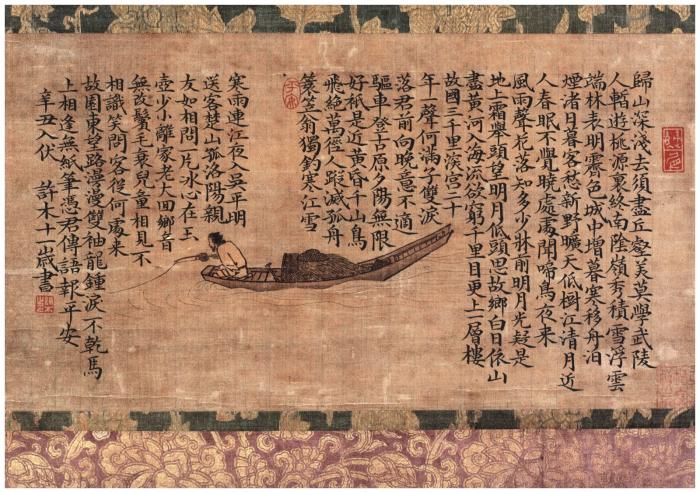 歸山深淺去須盡丘壑美莫學武陵
人暫遊桃源裏終南陰嶺秀積雪浮雲
端林表明霽色城中增暮寒移舟泊
煙渚日暮客愁新野曠天低樹江清月近
人春眠不覺曉處處聞啼鳥夜來
風雨聲花落知多少牀前明月光疑是
地上霜舉頭望明月低頭思故鄉白日依山
盡黃河入海流欲窮千里目更上一層樓
故國三千里深宮二十
年一聲何滿子雙淚
落君前向晚意不適
驅車登古原夕陽無限
好秖是近黃昏千山鳥
飛絕萬徑人蹤滅孤舟
簑笠翁獨釣寒江雪
寒雨連江夜入吳平明
送客楚山孤洛陽親
友如相問一片冰心在玉
壺少小離家老大回鄉音
無改鬢毛衰兒童相見不
相識笑問客從何處來
故園東望路漫漫雙袖龍鍾淚不乾馬
上相逢無紙筆憑君傳語報平安
辛丑入伏 許木十一歲書